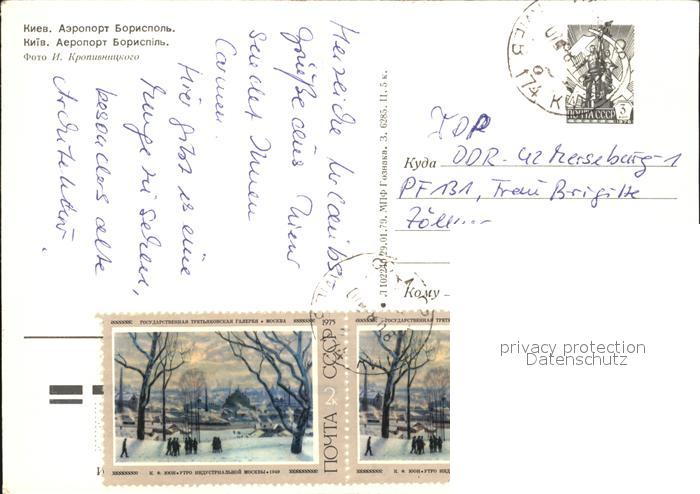 Киев. Аэропорт Борисполь.
Київ. Аеропорт Бориспіль.
Фото И. Кропивницкого
Herzliche Urlaubs-
grüße aus Kiew
sendet Ihnen
Hier gibt es eine
Menge zu sehen,
besonders alte
Architektur.
МПФ Гознака. З. 6285. Ц. 5 к.
ПОЧТА СССР 3
Куда DDR-42 Merseburg-1
PF 131, Frau Brigitte
Кому
ГОСУДАРСТВЕННАЯ ТРЕТЬЯКОВСКАЯ ГАЛЕРЕЯ • МОСКВА
1975
ПОЧТА СССР 2к
К. Ф. ЮОН • УТРО ИНДУСТРИАЛЬНОЙ МОСКВЫ • 1949
ГОСУДАРСТВЕННАЯ ТРЕТЬ
К. Ф. ЮОН • УТРО ИНД
privacy protection
Datenschutz